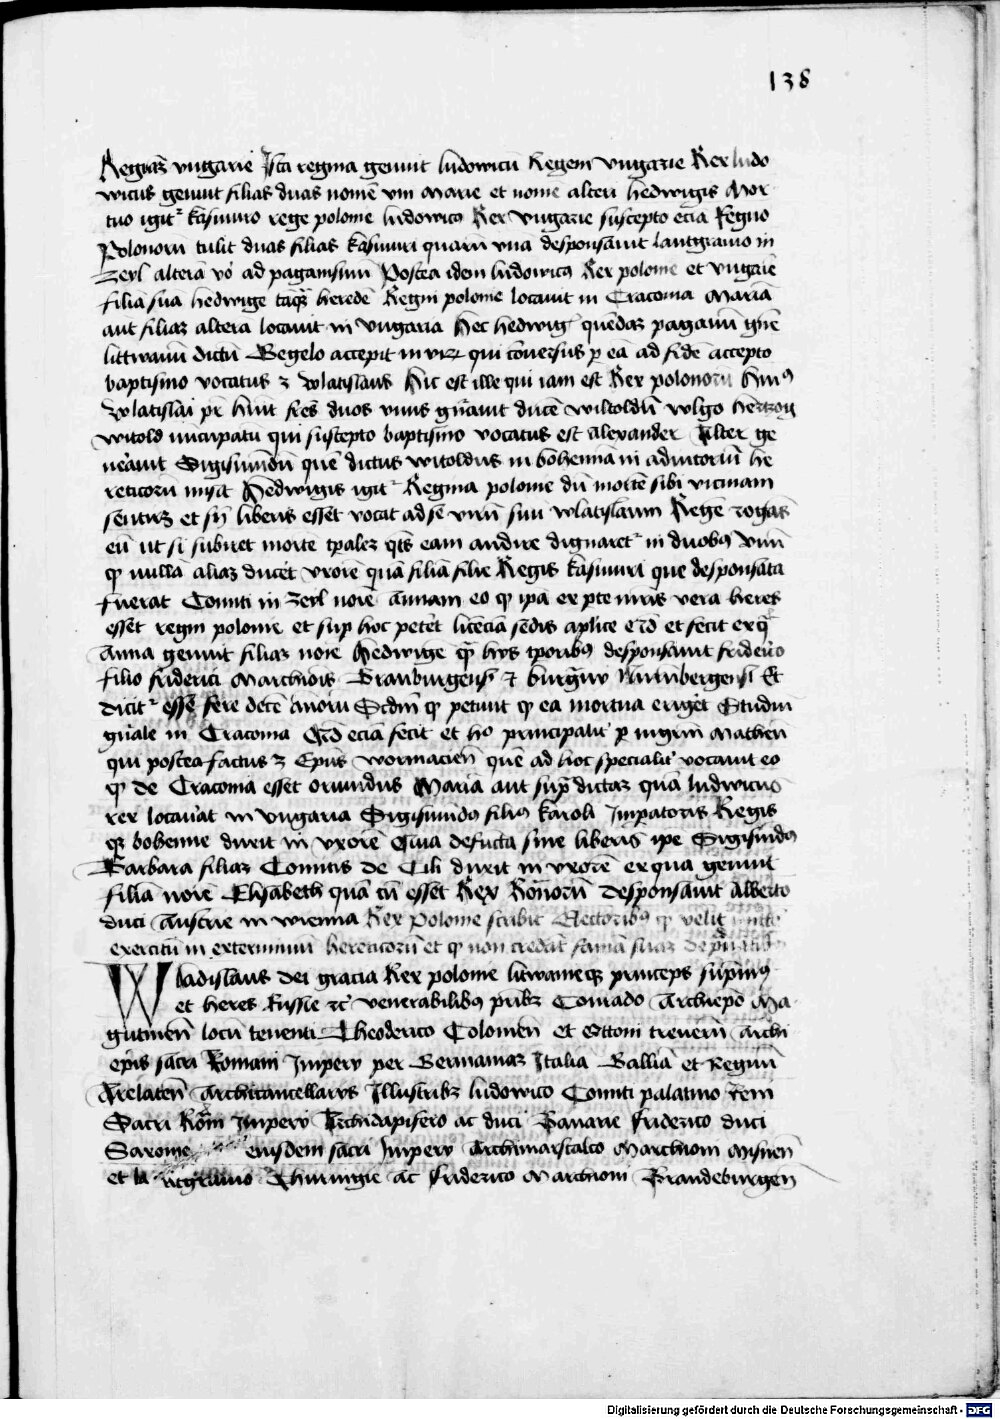 138
Regina Ungarie Ista regina genuit ludowicū Regem Ungarie Rex ludo
wicus genuit filias duas nomē uni Marie et nomē alteri hedwigis Mor
tuo igit' kasimiro rege polonie ludowico Rex Ungarie suscepto eciā Regno
Polonorū tulit duas filias kasimiri quarū una desponsavit lantgravio in
Zeyl alterā vō ad paganismū Postea idem ludowicus Rex polonie et ungarie
filiā suā hedwigē tāquā heredē Regni polonie locavit in Cracovia Mariā
aut filiaz alterā locavit in Ungaria Hec hedwig quendaz paganū
littwanū dictū accepit in uxor qui conversus p eā ad fidē accepto
baptismo vocatus ē Wlatislaus Hic est ille qui iam est Rex polonorū huius
Wlatislai pr huit frēs duos unus gnavit ducē witoldū wlgo hertzog
witold nūcupatū qui suscepto baptismo vocatus est Alexander Alter ge
neravit Sigismūdū quē dictus witoldus in bohemia in adiutoriū he
reticorū misit Hedwigis igit' Regina polonie dū mortē sibi vicinam
sentiret et sn liberis esset vocat ad se virū suū wlatislaum Regē rogās
eū ut si subiret mortē tpalez qts eam audire dignaret' in duobus Unū
qp nullā aliaz ducet uxorē quā filiā filie Regis kasimiri que desponsata
fuerat Comiti in Zeyl noīe Annam eo qp ipa ex pte mris vera heres
esset regni polonie et sup hoc petet licēciā sedis aplice et fecit ex q
Anna genuit filiaz noīe Hedwigē quā hys tporibus desponsavit friderico
filio friderici Marchionis Branburgens et burgravy Nurnbergens Et
dicit' esse fere decē annorū Scdm qp petivit qp ea mortua eriget Studiū
gnale in Cracovia Qd eciā fecit et ho principalit' p mgrm Matheū
qui postea factus ē Epūs wormacien quē ad hoc specialit' vocavit eo
qp de Cracovia esset oriundus Mariā aut supdictaz quā ludwicus
rex locavat in ungaria Sigismūdus filius karoli Impatoris Regis
qz bohemie duxit in uxorē Qua defūcta sine liberis ipe Sigismūdus
Barbarā filiaz Comitis de Cili duxit in uxorē ex qua genuit
filiā noīe Elisabeth quā cū esset Rex Romorū desponsavit Alberto
duci Austrie in wienna Rex Polonie scribit Electoribus qp velit
exercitū in exterminiū hereticorū et qp non credāt famā suaz
Wladislaus dei gracia Rex polonie litwanieqz princeps supmus
et heres Russie etc venerabilibus prībz Conrado Archiepo Ma
gutinen locū tenenti Theoderico Colonien et Ottoni treveren Archi
epis sacri Romani Impery per Germaniaz Italiā Galliā et Regnū
Arelaten Archicancellarys Illustribz ludowico Comiti palatino Reni
Sacri Rom Impery Archidapifero ac duci Bavarie friderico duci
Saxonie eiusdem sacri Impery Archimarscalco Marchioni Misnen
et la ntgravio Thuringie Ac friderico Marchioni Brandeburgen
Digitalisierung gefördert durch die Deutsche Forschungsgemeinschaft - DFG